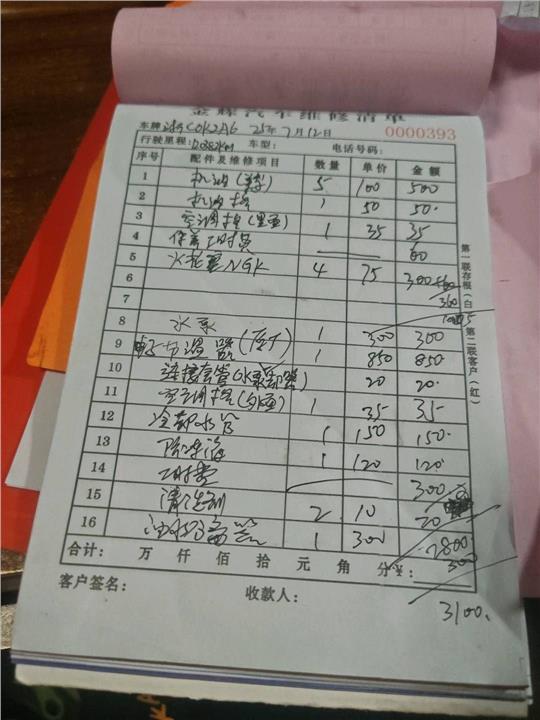 金牌汽车维修清单
车牌 浙C0K2A6 25年7月12日 0000393
行驶里程: KM 车型: 电话号码:
序号 配件及维修项目 数量 单价 金额
1 机油(美孚) 5 100 500
2 机油格 1 50 50.
3 空调格(里面) 1 35 35
4 保养工时费 60
5 火花塞NGK 4 75 300
6 360
7
8 水泵 1 300 300
9 电子节温器(原厂) 1 850 850
10 连接套管(水泵 20 20.
11 空调格(外面) 1 35 35
12 冷却水管 1 150 150.
13 防冻液 1 120 120.
14 工时费 300
15 清洗剂 2 10 20
16 1 300 2800
合计: 万 仟 佰 拾 元 角 分 ¥: 300
客户签名: 收款人:
3100.
第一联存根(白) 第二联客户(红)